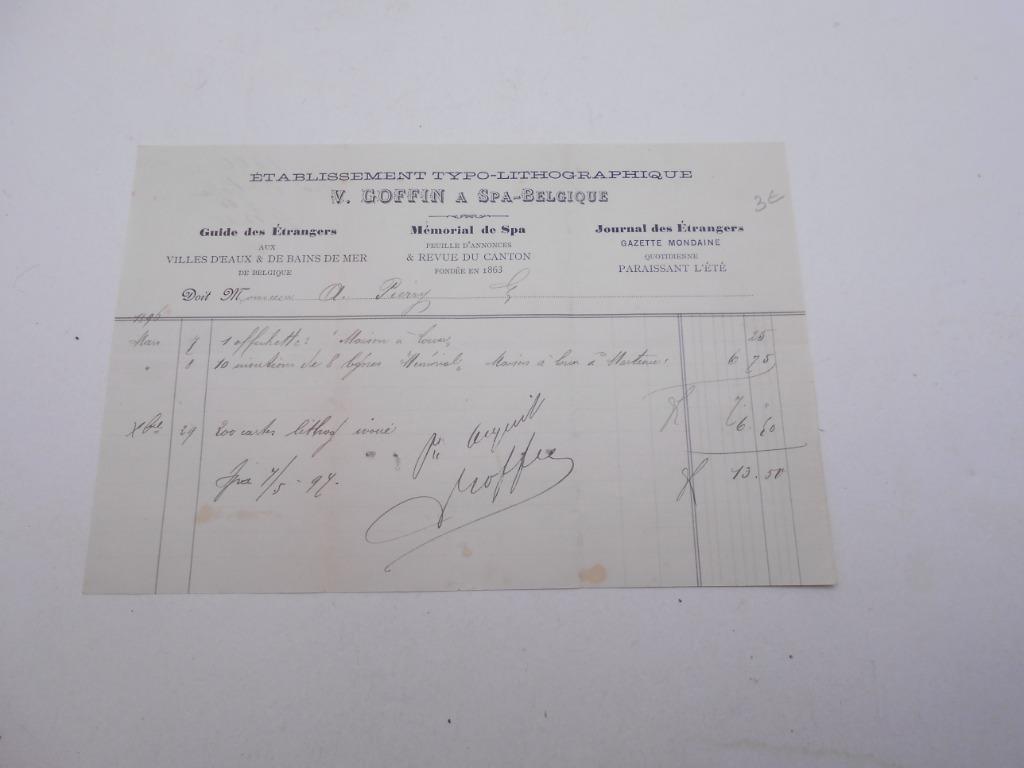 ÉTABLISSEMENT TYPO-LITHOGRAPHIQUE
V. GOFFIN A SPA-BELGIQUE
3€
Guide des Étrangers
AUX
VILLES D'EAUX & DE BAINS DE MER
DE BELGIQUE
Mémorial de Spa
FEUILLE D'ANNONCES
& REVUE DU CANTON
FONDÉE EN 1863
Journal des Étrangers
GAZETTE MONDAINE
QUOTIDIENNE
PARAISSANT L'ÉTÉ
Doit Monsieur A.
1896
Mars 1 "Maison à louer" 25
10 insertions de 8 lignes "Mémorial" Maison à 6 75
7. "
Xbre 29 200 cartes lithog 6. 50
Spa 7/5 - 97. pr acquit 13.50
VGoffin